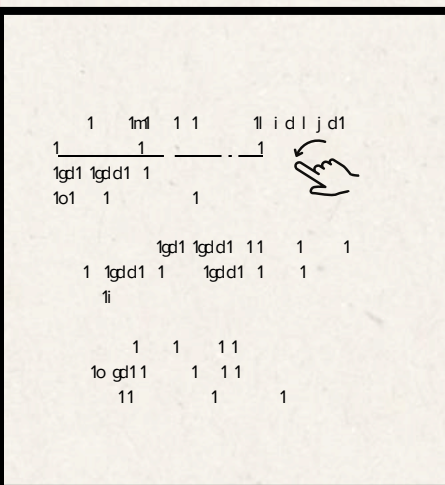 1 1ml 1 1 1l i d l j d1
1 1 1
1gd1 1gdd1 1
1o1 1 1
1gd1 1gdd1 1 1 1 1
1 1gdd1 1 1gdd1 1 1
1i
1 1 1 1
1o gd1 1 1 1 1
1 1 1 1